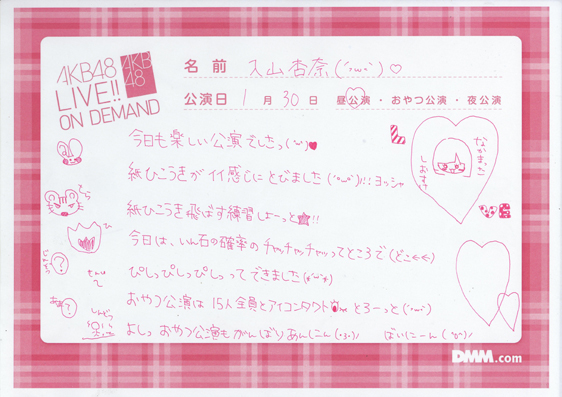 AKB48
LIVE!!
ON DEMAND
AKB
48
名前 入山杏奈(´・ω・`)♡
公演日 1月30日 昼公演・おやつ公演・夜公演
今日も楽しい公演でしたっ(˙ω˙)♥
紙ひこうきがイイ感じにとびました(°ω°)!!ヨッシャ
紙ひこうき飛ばす練習しよーっと★!!
今日は、いん石の確率のチャッチャッチャッってところで(どこ←←)
ぴしっぴしっぴしってできました
おやつ公演は15人全員とアイコンタクト とろーっと(°ω°)
よしっ おやつ公演もがんばりあんにん(・3・)/ ばいにーん(°0°)/
なかまった
しおすけ
DMM.com